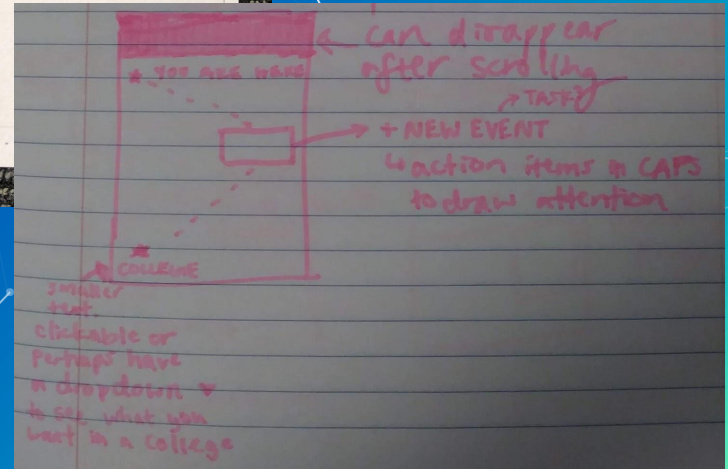 ← can disappear
after scrolling
★ YOU ARE HERE
→ TASK?
+ NEW EVENT
↳ action items in CAPS
to draw attention
★
COLLEGE
smaller
text.
clickable or
perhaps have
a dropdown ▼
to see what you
want in a college